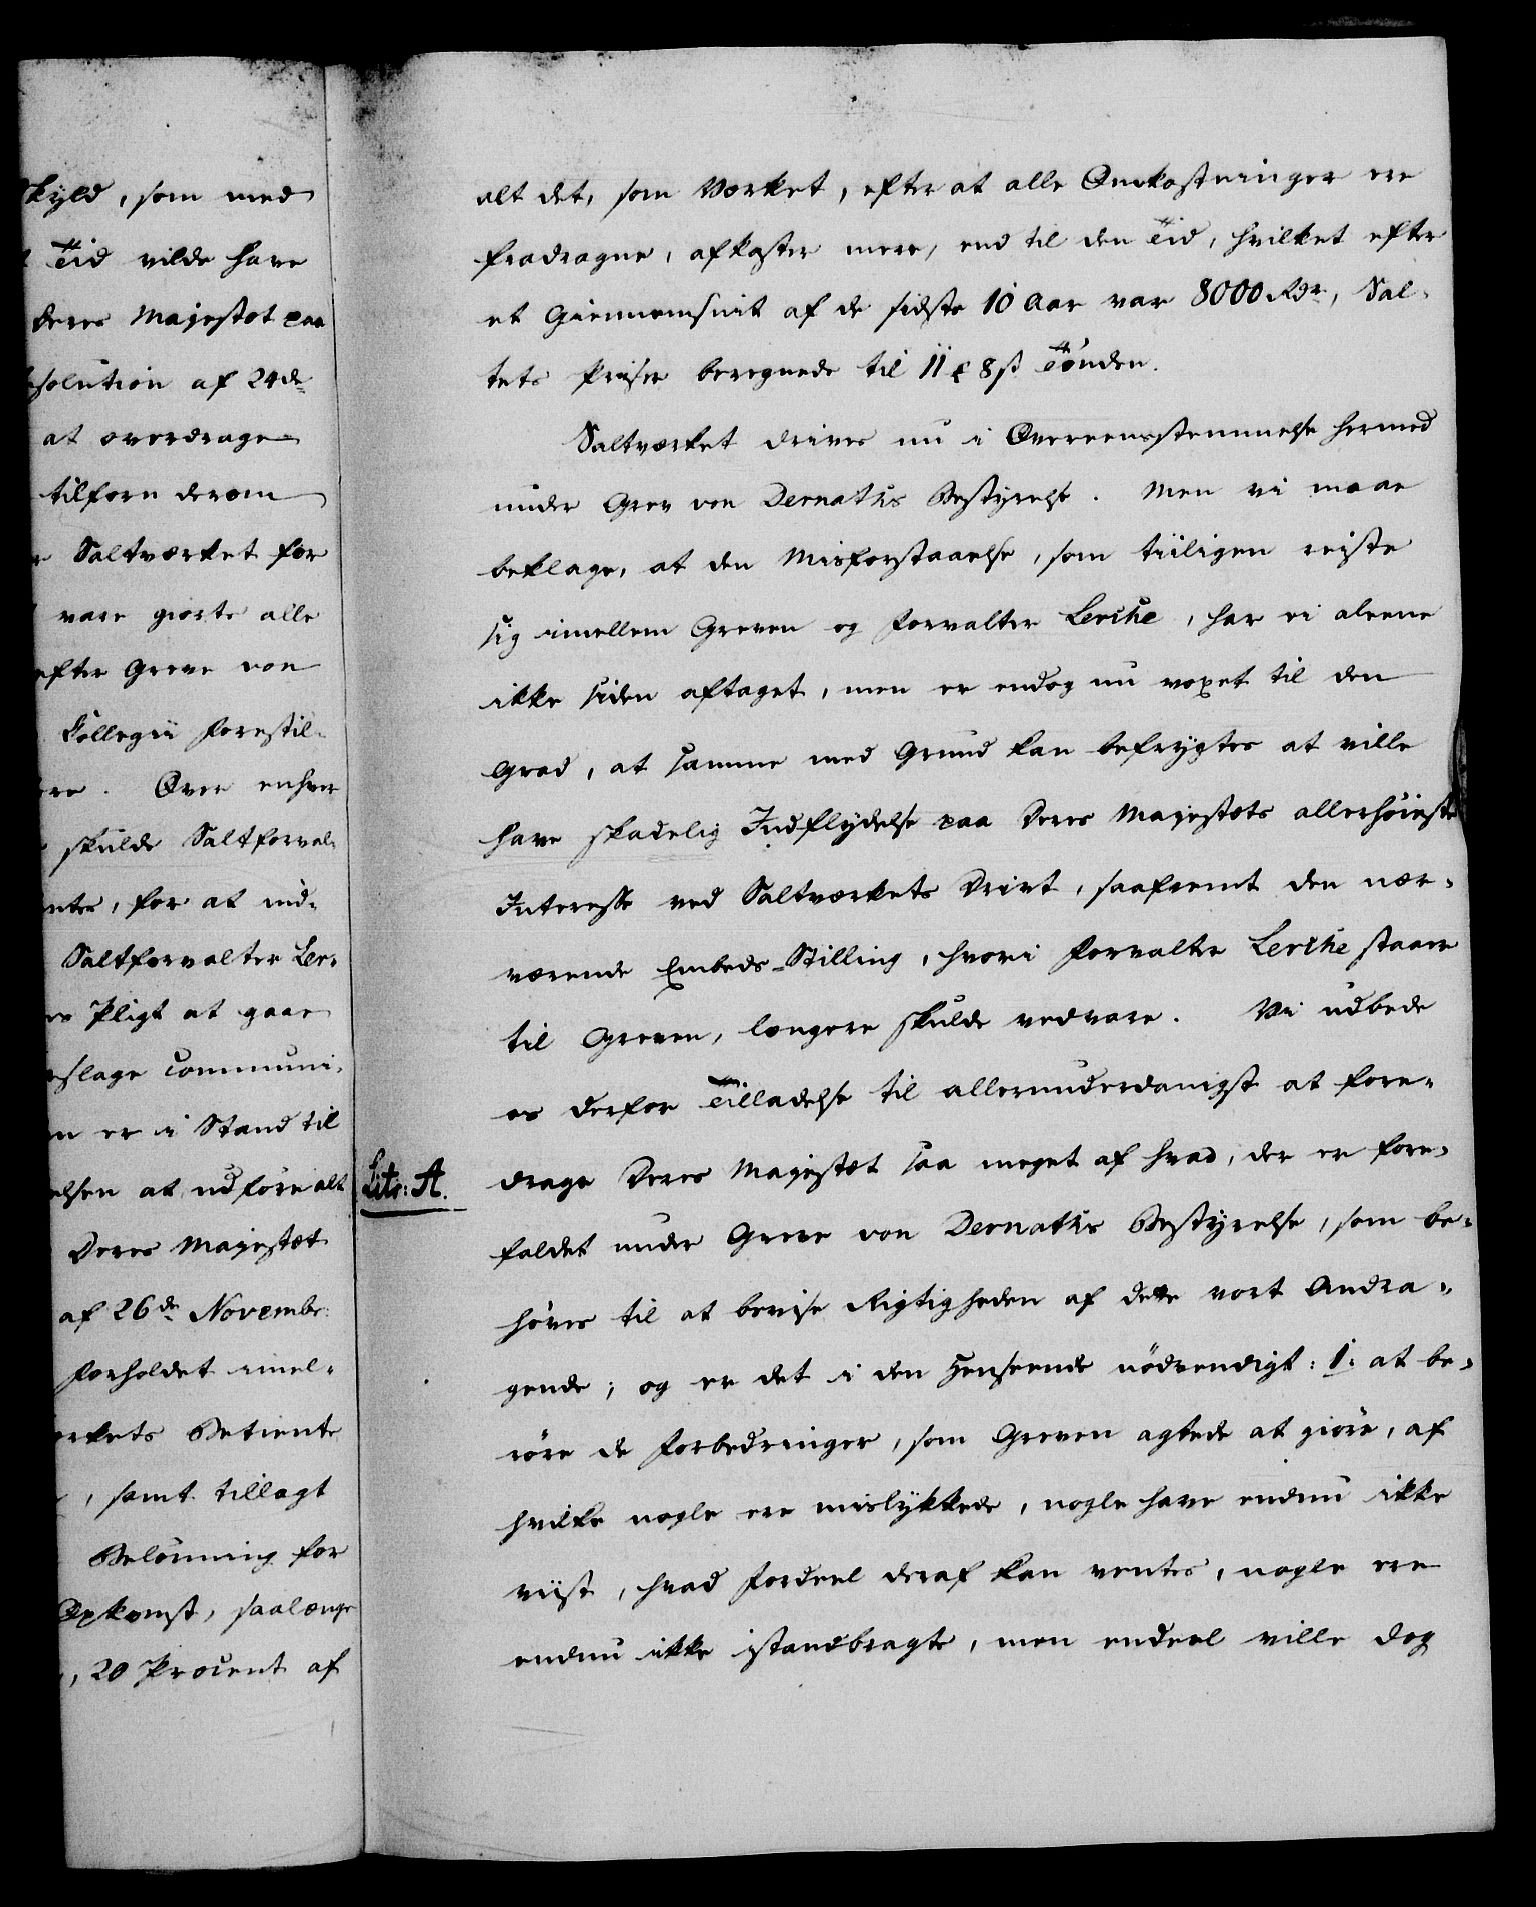 kyld, som med
Tid vilde have
Deres Majestæt paa
solution af 24de
at overdrage
tilforn derom
Saltværket for
vare giorte alle
efter Greve von
Collegii Forestil-
re. Over enhver
skulde Saltforval-
ntes, for at ind-
Saltforvalter Ler-
es Pligt at gaae
slage communi-
n er i Stand til
elsen at udføre alt
Deres Majestæt
af 26de Novembr:
Forholdet imel-
rkets Betiente
, samt tillagt
Belønning for
Opkomst, saalænge
, 20 Procent af
alt det, som Værket, efter at alle Omkostninger ere
fradragne, afkaster mere, end til den Tid, hvilket efter
et Giennemsnit af de sidste 10 Aar var 8000 Rdr, Sal-
tets Priser beregnede til 11 ₤ 8 ß Tønden.
Saltværket drives nu i Overeensstemmelse hermed
under Grev von Dernaths Bestyrelse. Men vi maae
beklage, at den Misforstaaelse, som tiiligen reiste
sig imellem Greven og Forvalter Lerche, har ei aleene
ikke siden aftaget, men er endog nu voxet til den
Grad, at samme med Grund kan befrygtes at ville
have skadelig Indflydelse paa Deres Majestæts allerhøieste
Interesse ved Saltværkets Drivt, saafremt den nær-
værende Embeds-Stilling, hvori Forvalter Lerche staaer
til Greven, længere skulde vedvare. Vi udbede
os derfor Tilladelse til allerunderdanigst at fore-
Litr: A.
drage Deres Majestæt saa meget af hvad, der er fore-
faldet under Greve von Dernaths Bestyrelse, som be-
høves til at bevise Rigtigheden af dette vort Andra-
gende; og er det i den Henseende nødvendigt: 1: at be-
røre de Forbedringer, som Greven agtede at giøre, af
hvilke nogle ere mislykkede, nogle have endnu ikke
viist, hvad Fordeel deraf kan ventes, nogle ere
endnu ikke istandbragte, men endeel ville dog